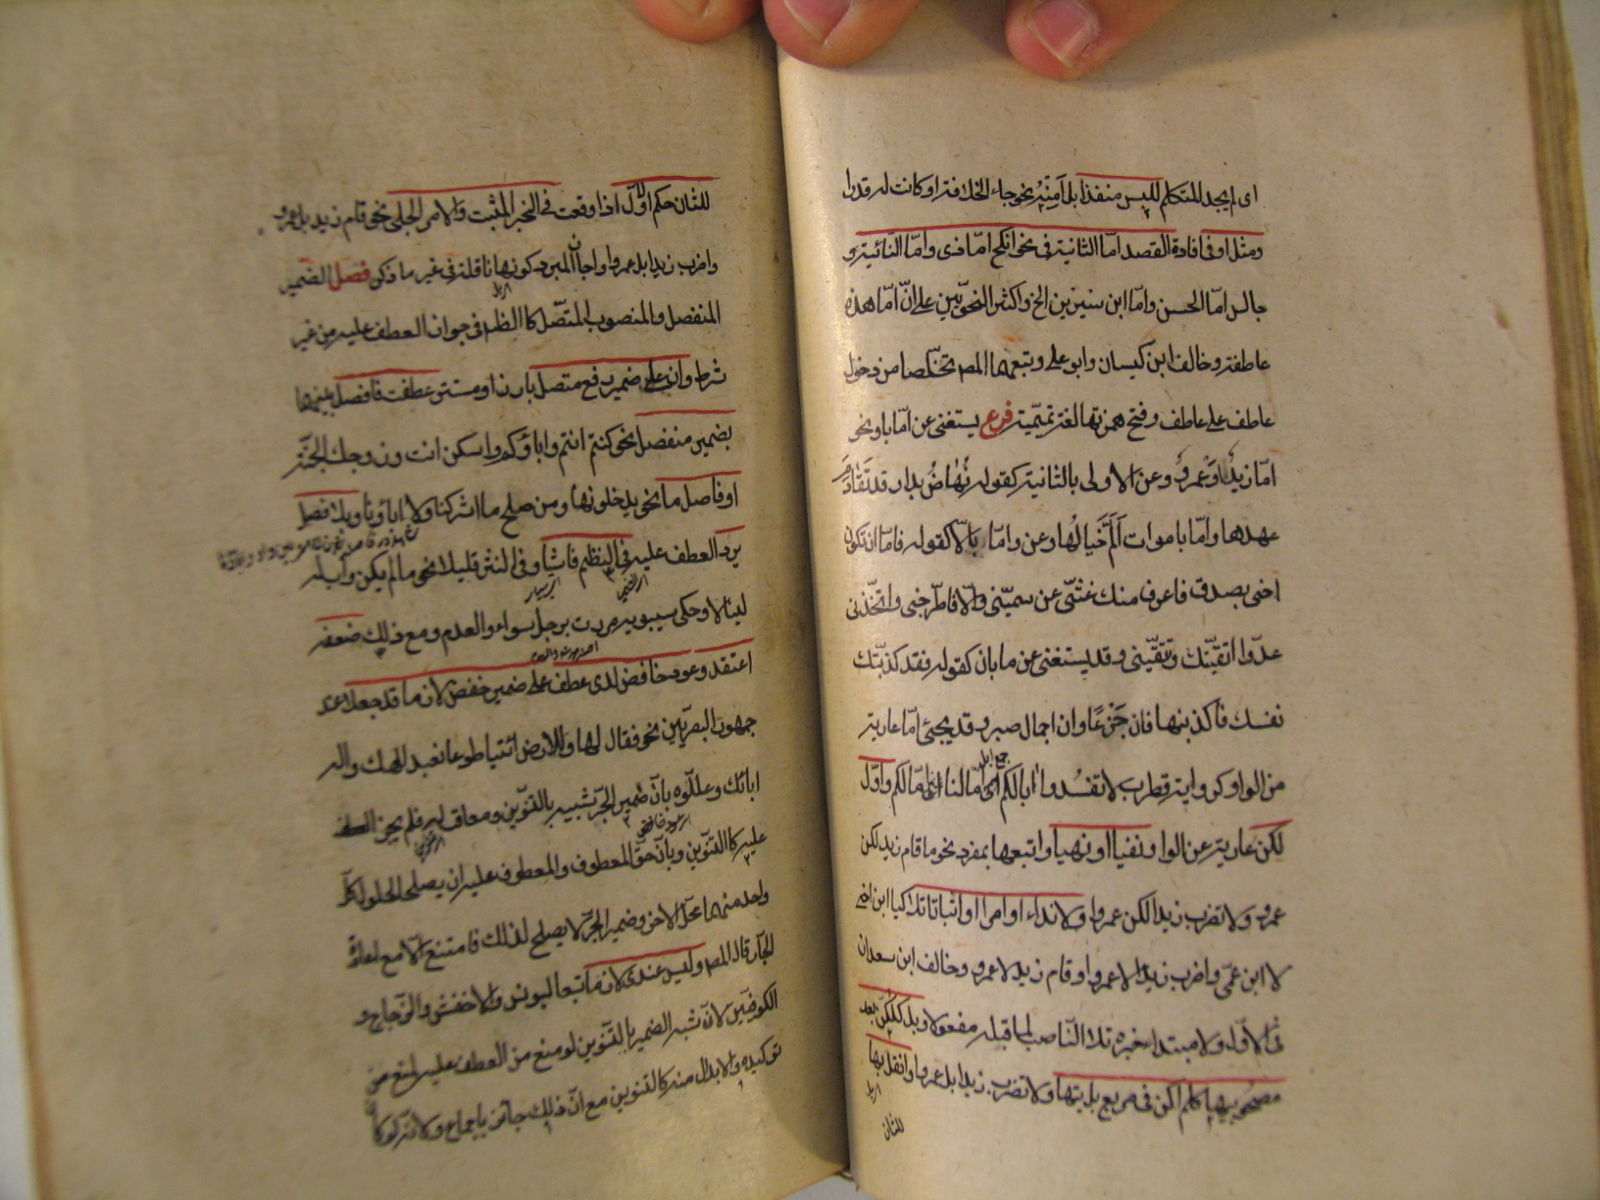 اى لم يجد للمتكلم لليس منفذا بل امنه نحو جاء الخلافة او كانت له قدرا
ومثل او فى افادة القصد اما الثانية فى نحو انكح اما ذى واما النائية و
جالس اما الحسن واما ابن سيرين الخ واكثر النحويين على ان اما هذه
عاطفة وخالف ابن كيسان وابو على وتبعهما المص تخلصا من دخول
عاطف على عاطف وفتح همزتها لغة تميمية فرع يستغنى عن اما باو نحو
اما زيد او عمرو وعن الاولى بالثانية كقوله نهاض بدار قد تقادم
عهدها واما باموات الم خيالها وعن واما بالا كقوله فاما ان تكون
اخى بصدق فاعرف منك غثى عن سمينى والا فاطرحنى واتخذنى
عدوا اتقيك وتتقينى وقد يستغنى عن ما بان كقوله فقد كذبتك
نفسك فاكذبنها فان جزعا وان اجمال صبر وقد يجئ اما عارية
من الواو كرواية قطرب لا تفسدوا ابالكم ايما لنا ايما لكم واول
جمع ابل
لكن عارية عن الواو نفيا او نهيا واتبعها بمفرد نحو ما قام زيد لكن
عمرو ولا تضرب زيدا لكن عمروا ولا نداء او امرا او اثباتا تلا كيا ابن اخى
لا ابن عمى واضرب زيدا لا عمروا وقام زيد لا عمرو وخالف ابن سعدان
فى الاول ولا مبتداء خبره تلا الناصب لما قبله مفعولا وبل كلكن بعد
مصحوبيها كلم اكن فى مربع بل يتها ولا تضرب زيدا بل عمروا وانقل بها
اى بل
للثان
للثان حكم الاول اذا وقعت فى الخبر المثبت والامر الجلى نحو قام زيد بل عمرو
واضرب زيدا بل عمروا واجاز المبرد كونها ناقلة فى غير ما ذكر فصل الضمير
اى بل
المنفصل والمنصوب المتصل كالظاهر فى جواز العطف عليه من غير
شرط وان على ضمير رفع متصل بارز او مستتر عطفت فافصل بينهما
بضمير منفصل نحو كنتم انتم واباؤكم واسكن انت وزوجك الجنة
او فاصل ما نحو يدخلونها ومن صلح ما اشركنا ولا اباؤنا وبلا فصل
يرد العطف عليه فى النظم فاشيا وفى النثر قليلا نحو ما لم يكن واب له
لينالا وحكى سيبويه مررت برجل سواء والعدم ومع ذلك ضعفه
اعتقد وعود خافض لدى عطف على ضمير خفض لازما قد جعلا عند
جمهور البصريين نحو فقال لها وللارض ائتيا طوعا نعبد الهك واله
ابائك وعللوه بان ضمير الجر شبيه بالتنوين ومعاقب له فلم يجز العطف
اى عود خافض
عليه كالتنوين وبان حق المعطوف والمعطوف عليه ان يصلحا لحلول كل
واحد منهما محل الاخر وضمير الجر لا يصلح لذلك فامتنع الا مع اعادة
الجار قال المص وليس عندى لازما تبعا ليونس والاخفش والزجاج و
الكوفيين لان شبه الضمير بالتنوين لو منع من العطف عليه لمنع من
توكيده والابدال منه كالتنوين مع ان ذلك جائز باجماع ولانه لو كا